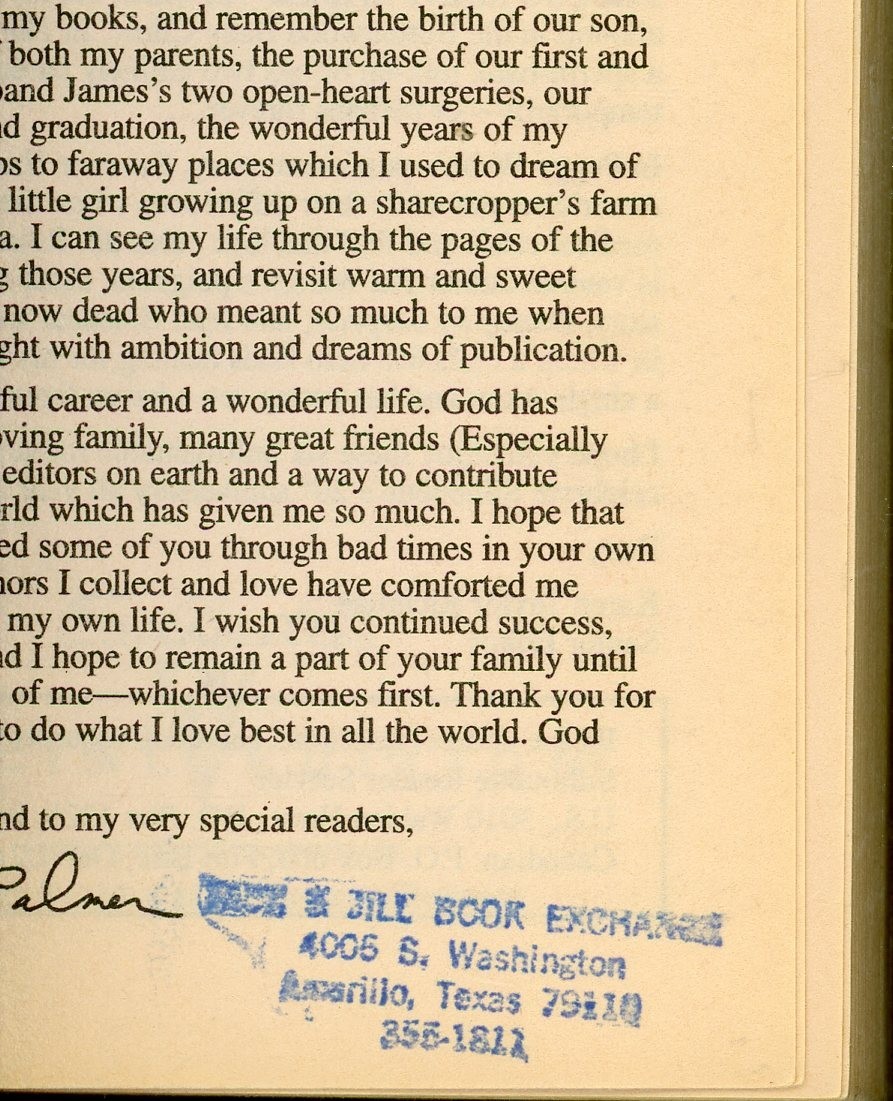 my books, and remember the birth of our son,
both my parents, the purchase of our first and
and James's two open-heart surgeries, our
d graduation, the wonderful years of my
ps to faraway places which I used to dream of
little girl growing up on a sharecropper's farm
a. I can see my life through the pages of the
g those years, and revisit warm and sweet
now dead who meant so much to me when
ght with ambition and dreams of publication.
ful career and a wonderful life. God has
oving family, many great friends (Especially
editors on earth and a way to contribute
rld which has given me so much. I hope that
ed some of you through bad times in your own
hors I collect and love have comforted me
my own life. I wish you continued success,
nd I hope to remain a part of your family until
of me—whichever comes first. Thank you for
to do what I love best in all the world. God
nd to my very special readers,
Palmer
& JILL BOOK EXCHANGE
4006 S. Washington
Amarillo, Texas 79110
355-1811